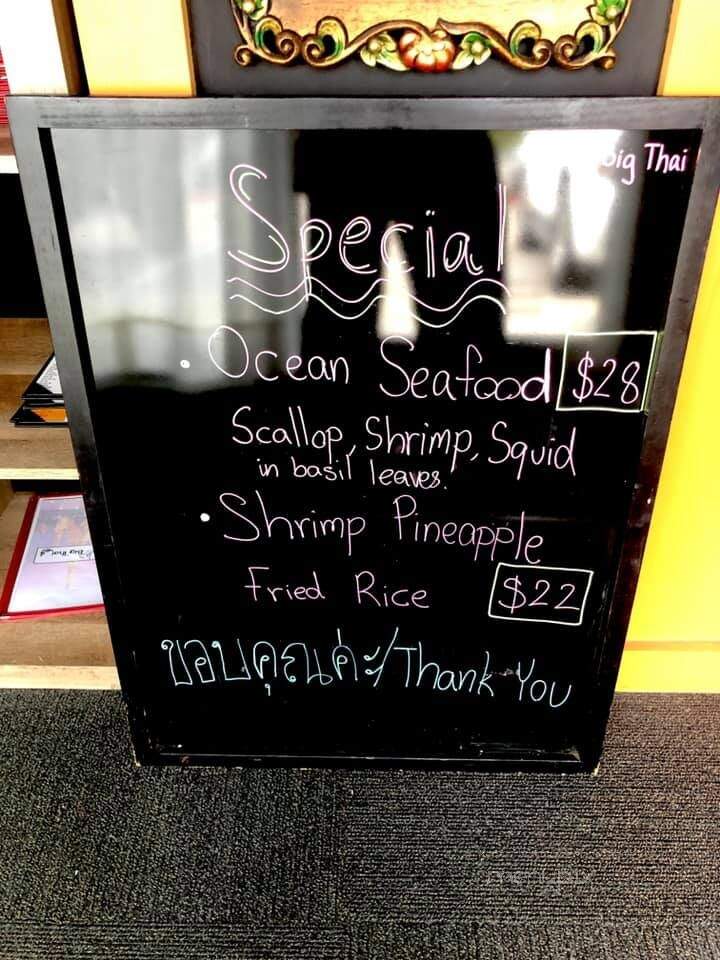 Big Thai
Special
• Ocean Seafood $28
Scallop, Shrimp, Squid
in basil leaves.
• Shrimp Pineapple
Fried Rice $22
ขอบคุณค่ะ/Thank You